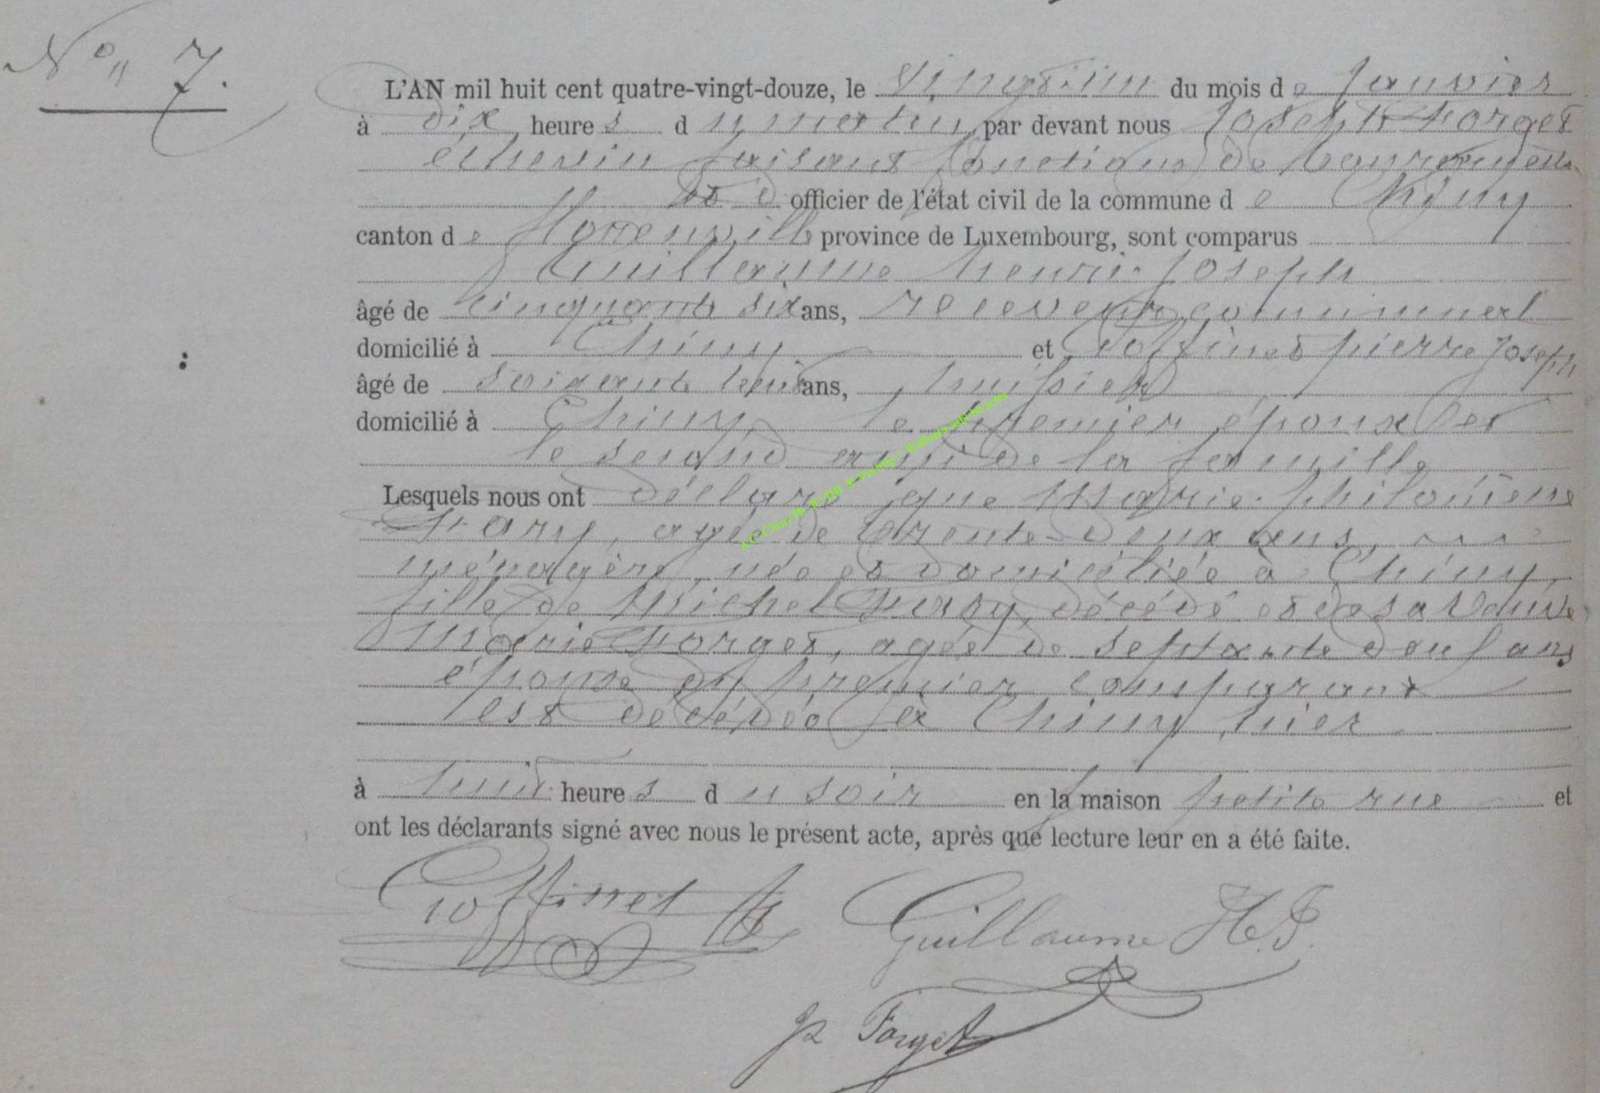 N° 7.
L'AN mil huit cent quatre-vingt-douze, le vingt-un du mois de Janvier
à dix heures du matin, par devant nous Joseph Forget
échevin faisant fonctions de Bourgmestre
officier de l'état civil de la commune de Chiny
canton de Florenville province de Luxembourg, sont comparus
Guillaume henri Joseph
âgé de cinquante six ans, receveur communal
domicilié à Chiny et Goffinet pierre Joseph
âgé de soixante huit ans, huissier
domicilié à Chiny, le premier époux et
le second ami de la famille
Lesquels nous ont déclaré que Marie philomène
agée de trente deux ans,
ménagère, née et domiciliée à Chiny,
fille de Michel décédé et de sa veuve
Marie Forget, agée de septante deux ans
épouse du premier comparant
est décédée à Chiny hier
à huit heures du soir en la maison petite rue et
ont les déclarants signé avec nous le présent acte, après que lecture leur en a été faite.
Goffinet Guillaume H. J.
Forget